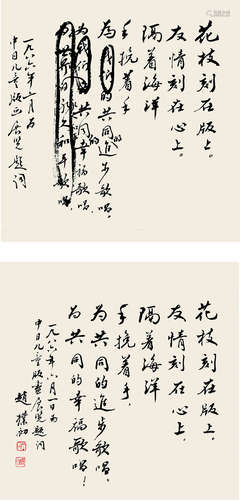 花枝刻在版上。
友情刻在心上。
隔着海洋
手挽着手
為共同的進步歌唱，
為共同的幸福歌唱，
一九八六年六月為
中日儿童版画展览題詞
花枝刻在版上。
友情刻在心上。
隔着海洋
手挽着手，
為共同的進步歌唱，
為共同的幸福歌唱！
一九八六年六月一日為
中日儿童版畫展览題詞
趙樸初